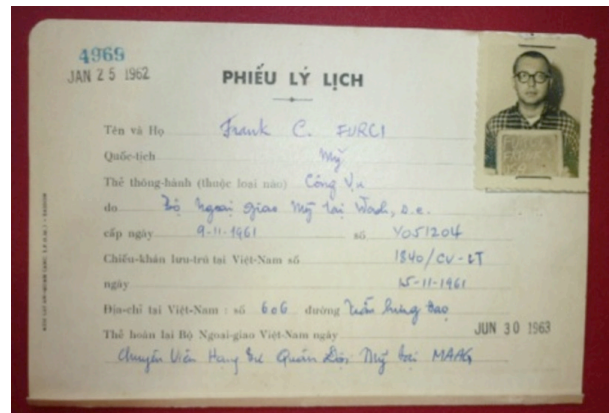 4969
JAN 25 1962
PHIẾU LÝ LỊCH
Tên và Họ Frank C. FURCI
Quốc-tịch Mỹ
Thẻ thông-hành (thuộc loại nào) Công Vụ
do Bộ Ngoại giao Mỹ tại Wash, D.C.
cấp ngày 9-11-1961 số Y051204
Chiếu-khán lưu-trú tại Việt-Nam số 1840/CV-LT
ngày 15-11-1961
Địa-chỉ tại Việt-Nam : số 606 đường Trần Hưng Đạo
Thẻ hoàn lại Bộ Ngoại-giao Việt-Nam ngày JUN 30 1963
Chuyên Viên Quân Đội Mỹ tại MAAG